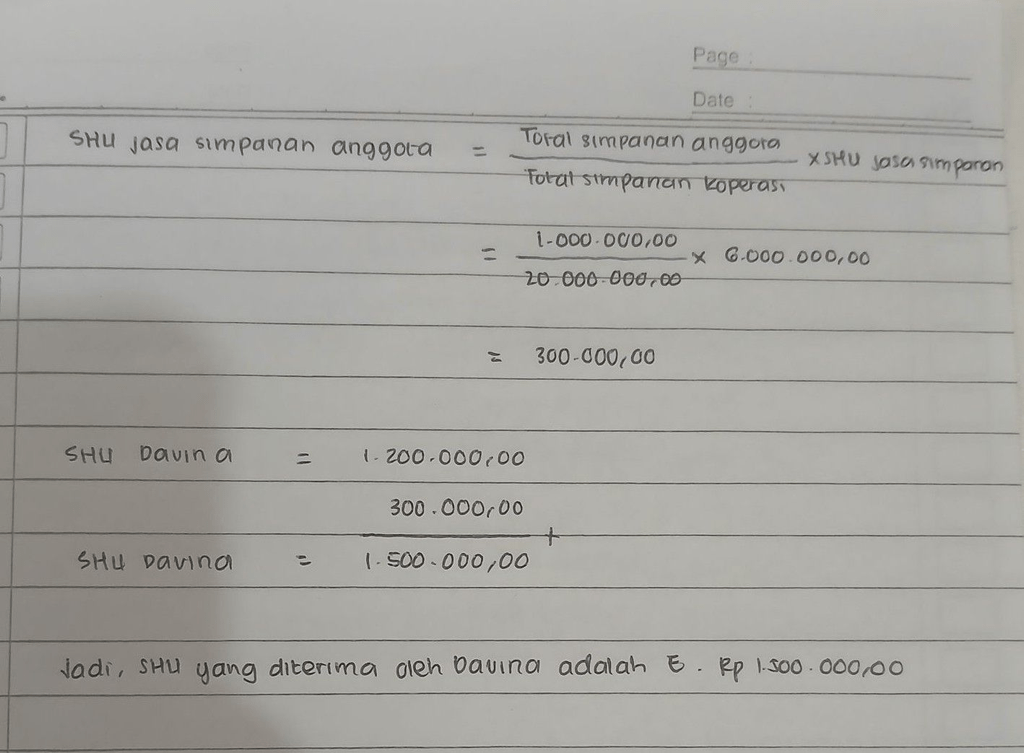 Page :
Date :
SHU jasa simpanan anggota = Total simpanan anggota x SHU jasa simpanan
Total simpanan koperasi
= 1.000.000,00 x 6.000.000,00
20.000.000,00
= 300.000,00
SHU Davina = 1.200.000,00
300.000,00 +
SHU Davina = 1.500.000,00
Jadi, SHU yang diterima oleh Davina adalah E. Rp 1.500.000,00